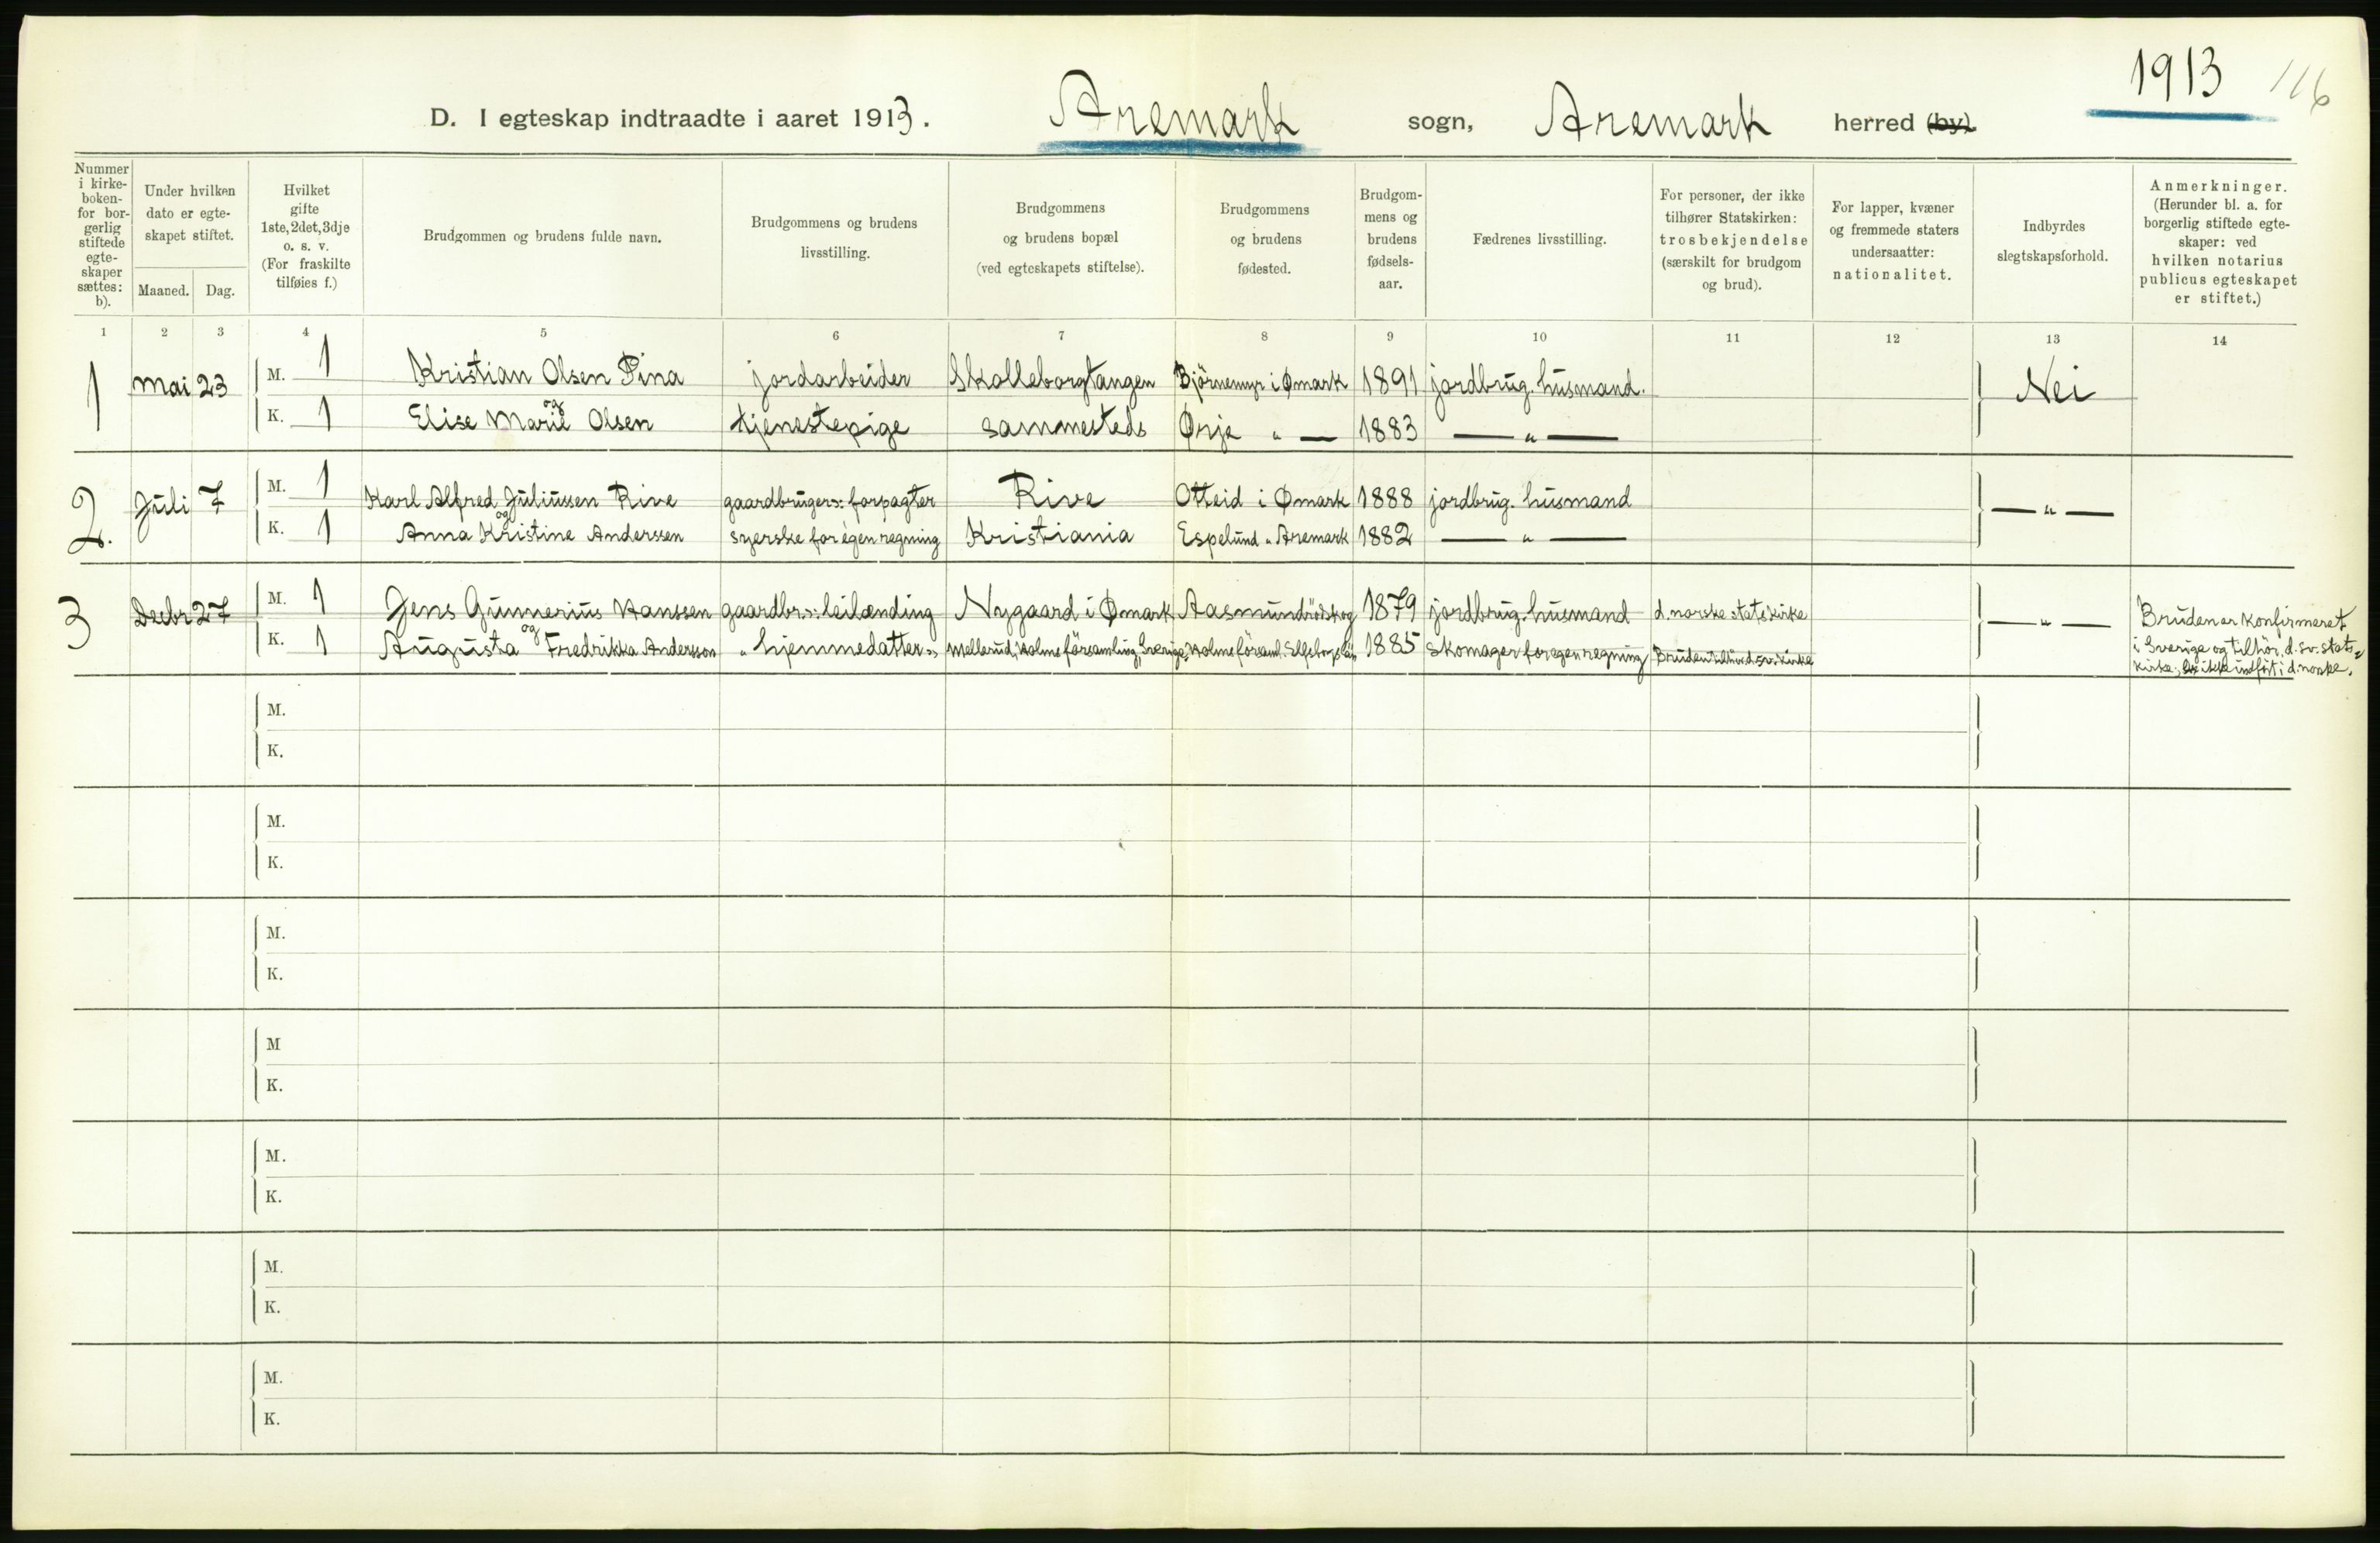 1913 116
D. I egteskap indtraadte i aaret 1913. Aremark sogn, Aremark herred (by)
Nummer i kirke- boken- for bor- gerlig stiftede egte- skaper sættes: b).
Under hvilken dato er egte- skapet stiftet.
Maaned. Dag.
Hvilket gifte 1ste, 2det, 3dje o. s. v. (For fraskilte tilføies f.)
Brudgommen og brudens fulde navn.
Brudgommens og brudens livsstilling.
Brudgommens og brudens bopæl (ved egteskapets stiftelse).
Brudgommens og brudens fødested.
Brudgom- mens og brudens fødsels- aar.
Fædrenes livsstilling.
For personer, der ikke tilhører Statskirken: trosbekjendelse (særskilt for brudgom og brud).
For lapper, kvæner og fremmede staters undersaatter: nationalitet.
Indbyrdes slegtskapsforhold.
Anmerkninger. (Herunder bl. a. for borgerlig stiftede egte- skaper: ved hvilken notarius publicus egteskapet er stiftet.)
1 2 3 4 5 6 7 8 9 10 11 12 13 14
1 Mai 23 M. 1 Kristian Olsen Pina jordarbeider Skolleborgtangen Bjørnemyr i Ømark 1891 jordbrug. husmand. Nei
og
K. 1 Elise Marie Olsen tjenestepige sammesteds Ørje „ — 1883 — „ —
2. Juli 7 M. 1 Karl Alfred Juliussen Rive gaardbruger: forpagter Rive Otteid i Ømark 1888 jordbrug. husmand — „ —
og
K. 1 Anna Kristine Anderssen syerske for egen regning Kristiania Espelund „ Aremark 1882 — „ —
3 Decbr 27 M. 1 Jens Gunnerius Hanssen gaardbr.: leilænding Nygaard i Ømark Aasmundrødskog 1879 jordbrug. husmand d. norske statskirke — „ — Bruden er konfirmeret
og
K. 1 Augusta Fredrikka Andersson „ hjemmedatter „ Mellerud, Holms församling, Sverige Holms församl. Elfsborgs län 1885 skomager for egen regning Bruden tilhør d. sv. kirke i Sverige og tilhör. d. sv. stats-
kirke; er ikke indført i d. norske.
M.
K.
M.
K.
M.
K.
M
K.
M.
K.
M.
K.
M.
K.